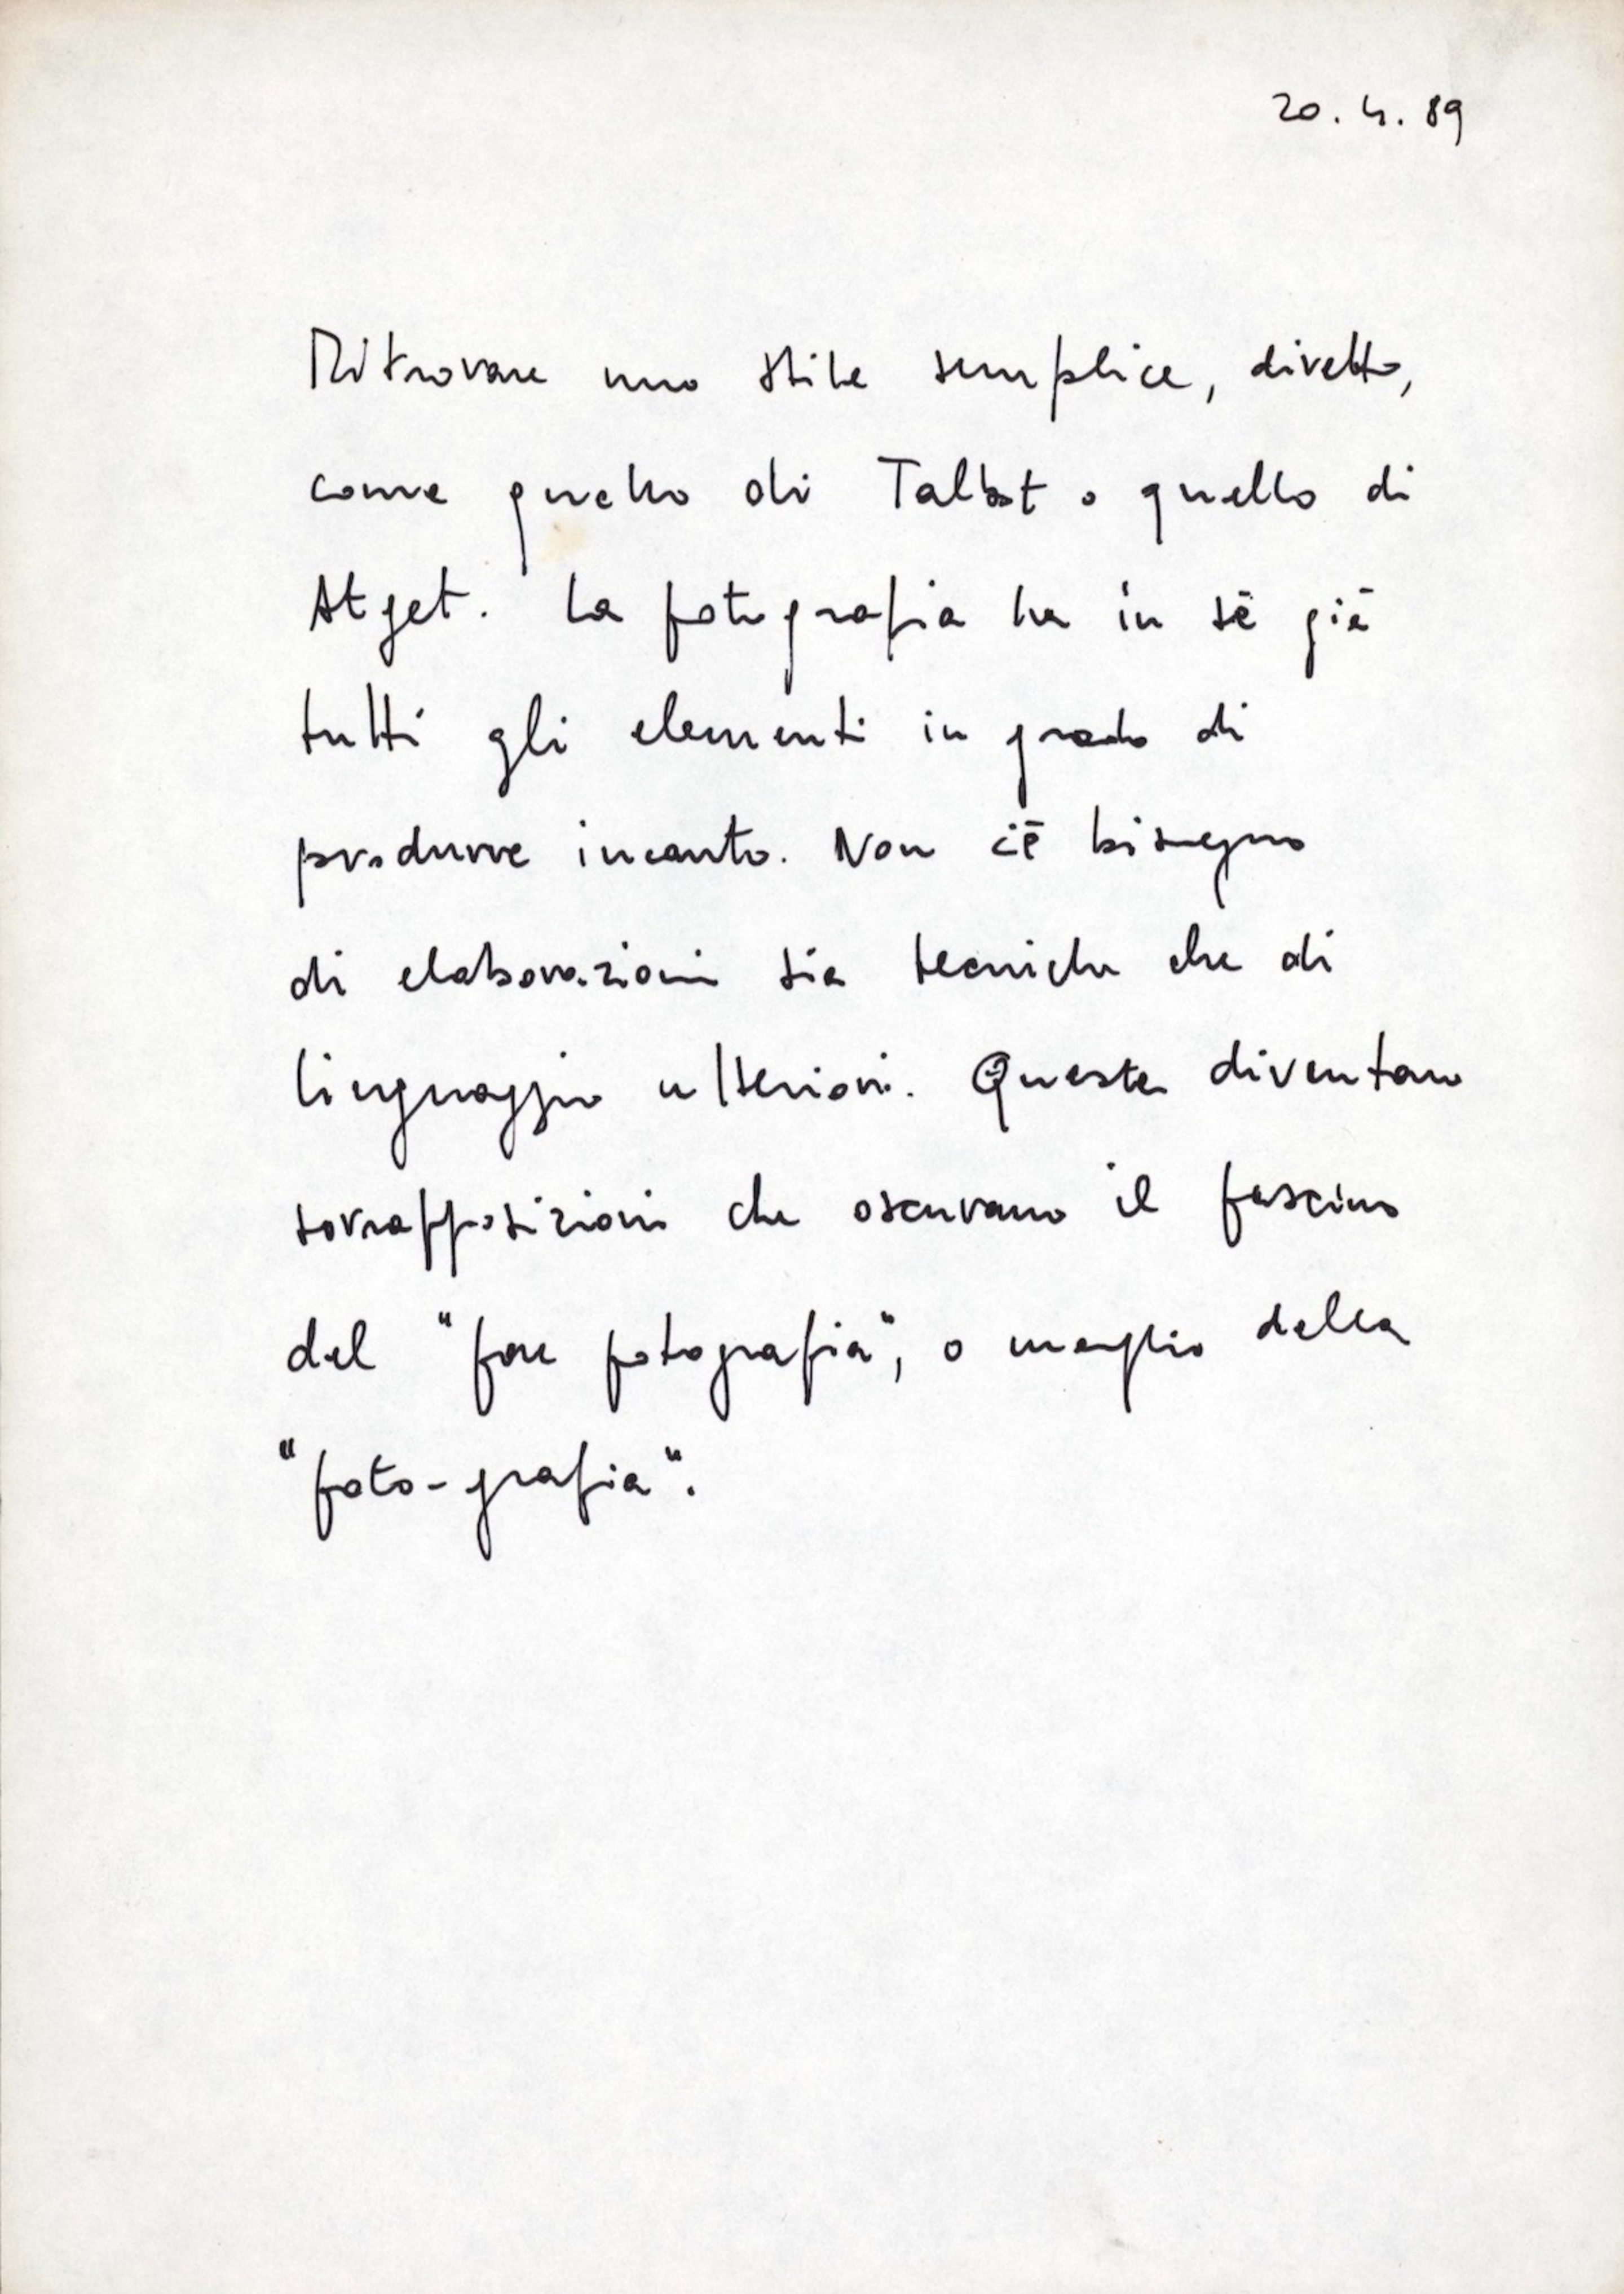 20.4.89
Ritrovare uno stile semplice, diretto,
come quello di Talbot o quello di
Atget. La fotografia ha in sé già
tutti gli elementi in grado di
produrre incanto. Non c'è bisogno
di elaborazioni sia tecniche che di
linguaggio ulteriori. Queste diventano
sovrapposizioni che oscurano il fascino
del "fare fotografia", o meglio della
"foto-grafia".